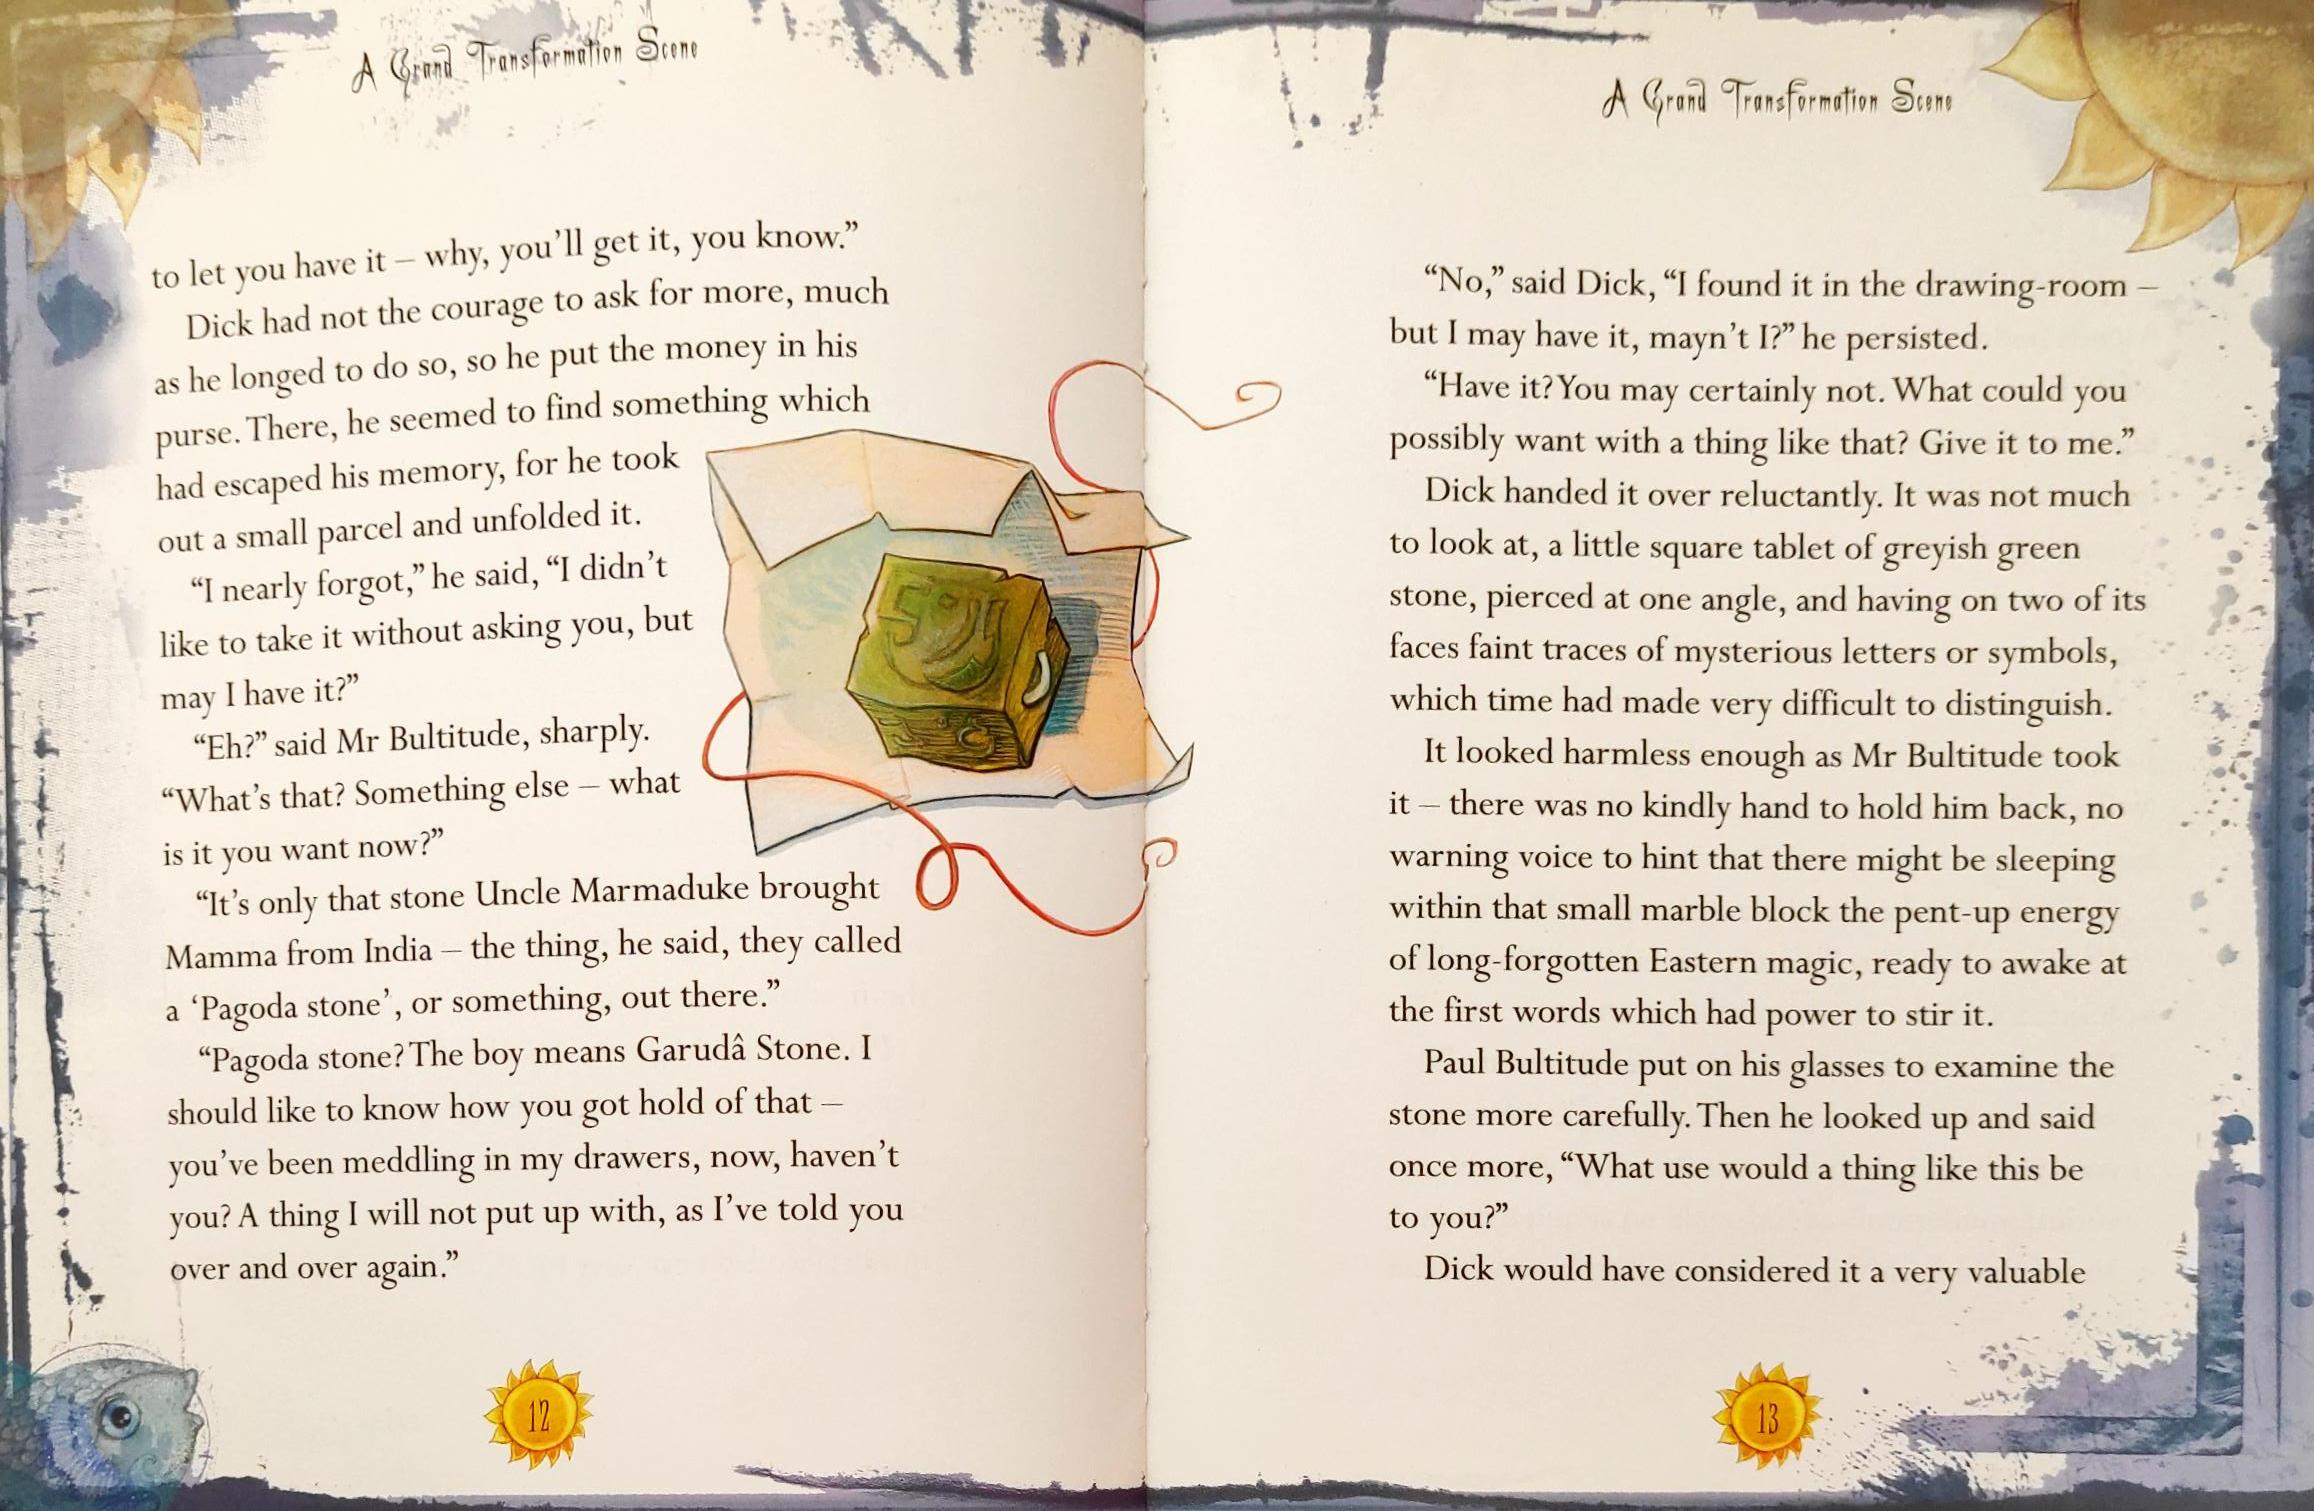 A Grand Transformation Scene
to let you have it – why, you’ll get it, you know.”
Dick had not the courage to ask for more, much
as he longed to do so, so he put the money in his
purse. There, he seemed to find something which
had escaped his memory, for he took
out a small parcel and unfolded it.
“I nearly forgot,” he said, “I didn’t
like to take it without asking you, but
may I have it?”
“Eh?” said Mr Bultitude, sharply.
“What’s that? Something else – what
is it you want now?”
“It’s only that stone Uncle Marmaduke brought
Mamma from India – the thing, he said, they called
a ‘Pagoda stone’, or something, out there.”
“Pagoda stone? The boy means Garudâ Stone. I
should like to know how you got hold of that –
you’ve been meddling in my drawers, now, haven’t
you? A thing I will not put up with, as I’ve told you
over and over again.”
12
A Grand Transformation Scene
“No,” said Dick, “I found it in the drawing-room –
but I may have it, mayn’t I?” he persisted.
“Have it? You may certainly not. What could you
possibly want with a thing like that? Give it to me.”
Dick handed it over reluctantly. It was not much
to look at, a little square tablet of greyish green
stone, pierced at one angle, and having on two of its
faces faint traces of mysterious letters or symbols,
which time had made very difficult to distinguish.
It looked harmless enough as Mr Bultitude took
it – there was no kindly hand to hold him back, no
warning voice to hint that there might be sleeping
within that small marble block the pent-up energy
of long-forgotten Eastern magic, ready to awake at
the first words which had power to stir it.
Paul Bultitude put on his glasses to examine the
stone more carefully. Then he looked up and said
once more, “What use would a thing like this be
to you?”
Dick would have considered it a very valuable
13